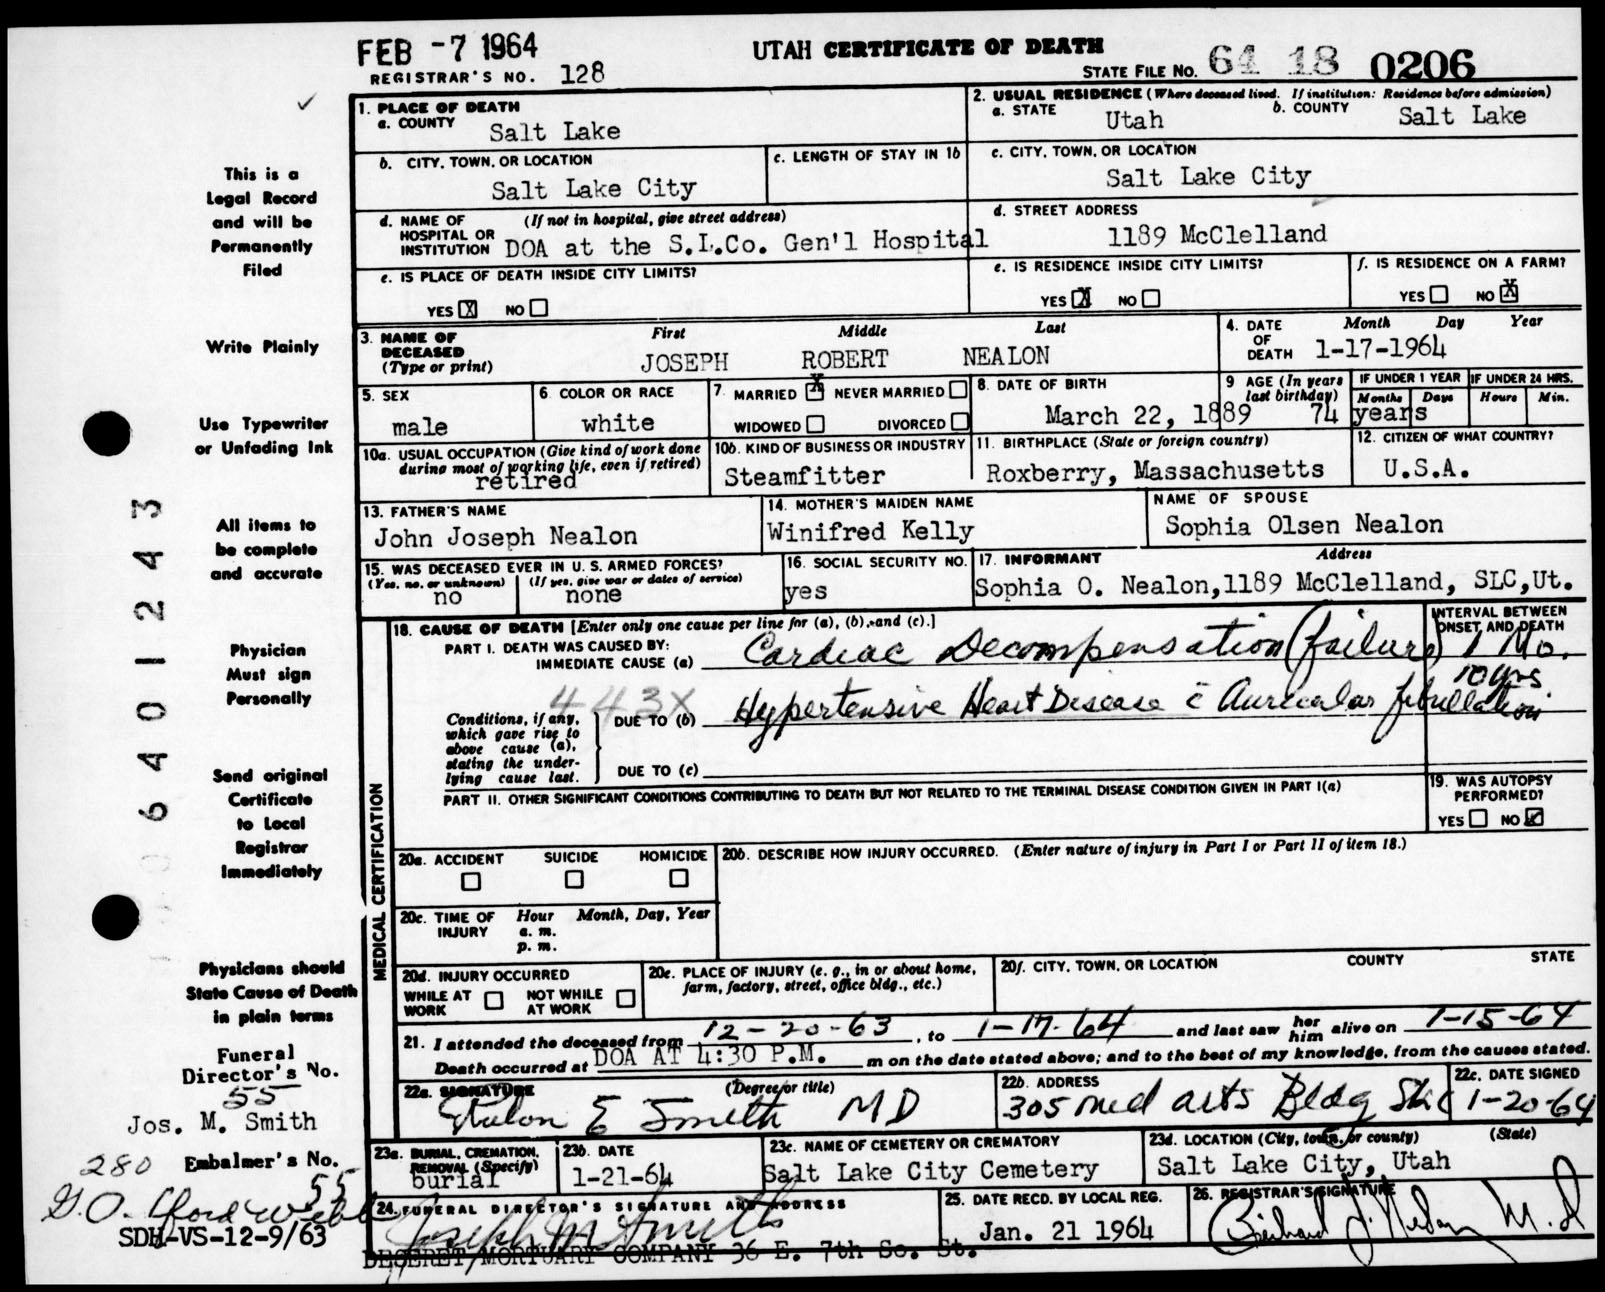 FEB -7 1964
UTAH CERTIFICATE OF DEATH
REGISTRAR'S NO. 128
STATE FILE NO. 64 18 0206
1. PLACE OF DEATH
a. COUNTY
Salt Lake
2. USUAL RESIDENCE (Where deceased lived. If institution: Residence before admission)
a. STATE
Utah
b. COUNTY
Salt Lake
b. CITY, TOWN, OR LOCATION
Salt Lake City
c. LENGTH OF STAY IN 1b
c. CITY, TOWN, OR LOCATION
Salt Lake City
d. NAME OF HOSPITAL OR INSTITUTION
(If not in hospital, give street address)
DOA at the S.L.Co. Gen'l Hospital
d. STREET ADDRESS
1189 McClelland
e. IS PLACE OF DEATH INSIDE CITY LIMITS?
YES X NO
e. IS RESIDENCE INSIDE CITY LIMITS?
YES X NO
f. IS RESIDENCE ON A FARM?
YES NO X
3. NAME OF DECEASED (Type or print)
First Middle Last
JOSEPH ROBERT NEALON
4. DATE OF DEATH
Month Day Year
1-17-1964
5. SEX
male
6. COLOR OR RACE
white
7. MARRIED X NEVER MARRIED
WIDOWED DIVORCED
8. DATE OF BIRTH
March 22, 1889
9 AGE (In years last birthday)
74 years
IF UNDER 1 YEAR
Months Days
IF UNDER 24 HRS.
Hours Min.
10a. USUAL OCCUPATION (Give kind of work done during most of working life, even if retired)
retired
10b. KIND OF BUSINESS OR INDUSTRY
Steamfitter
11. BIRTHPLACE (State or foreign country)
Roxberry, Massachusetts
12. CITIZEN OF WHAT COUNTRY?
U.S.A.
13. FATHER'S NAME
John Joseph Nealon
14. MOTHER'S MAIDEN NAME
Winifred Kelly
NAME OF SPOUSE
Sophia Olsen Nealon
15. WAS DECEASED EVER IN U. S. ARMED FORCES?
(Yes, no, or unknown) (If yes, give war or dates of service)
no none
16. SOCIAL SECURITY NO.
yes
17. INFORMANT Address
Sophia O. Nealon,1189 McClelland, SLC,Ut.
MEDICAL CERTIFICATION
18. CAUSE OF DEATH [Enter only one cause per line for (a), (b), and (c).]
INTERVAL BETWEEN ONSET AND DEATH
PART I. DEATH WAS CAUSED BY:
IMMEDIATE CAUSE (a) Cardiac Decompensation (failure) 1 Mo.
443X
10 yrs
Conditions, if any, which gave rise to above cause (a), stating the underlying cause last.
DUE TO (b) Hypertensive Heart Disease c̄ Auricular fibrillation
DUE TO (c)
PART II. OTHER SIGNIFICANT CONDITIONS CONTRIBUTING TO DEATH BUT NOT RELATED TO THE TERMINAL DISEASE CONDITION GIVEN IN PART I(a)
19. WAS AUTOPSY PERFORMED?
YES NO ✓
20a. ACCIDENT SUICIDE HOMICIDE
20b. DESCRIBE HOW INJURY OCCURRED. (Enter nature of injury in Part I or Part II of item 18.)
20c. TIME OF INJURY
Hour Month, Day, Year
a. m.
p. m.
20d. INJURY OCCURRED
WHILE AT WORK NOT WHILE AT WORK
20e. PLACE OF INJURY (e. g., in or about home, farm, factory, street, office bldg., etc.)
20f. CITY, TOWN, OR LOCATION COUNTY STATE
21. I attended the deceased from 12-20-63, to 1-17-64 and last saw her him alive on 1-15-64
Death occurred at DOA AT 4:30 P.M. m on the date stated above; and to the best of my knowledge, from the causes stated.
22a. SIGNATURE (Degree or title)
E Smith MD
22b. ADDRESS
305 Med Arts Bldg SLC
22c. DATE SIGNED
1-20-64
23a. BURIAL, CREMATION, REMOVAL (Specify)
burial
23b. DATE
1-21-64
23c. NAME OF CEMETERY OR CREMATORY
Salt Lake City Cemetery
23d. LOCATION (City, town, or county) (State)
Salt Lake City, Utah
24. FUNERAL DIRECTOR'S SIGNATURE AND ADDRESS
Joseph M Smith
DESERET MORTUARY COMPANY 36 E. 7th So. St.
25. DATE RECD. BY LOCAL REG.
Jan. 21 1964
26. REGISTRAR'S SIGNATURE
M.D
This is a
Legal Record
and will be
Permanently
Filed
Write Plainly
Use Typewriter
or Unfading Ink
All items to
be complete
and accurate
Physician
Must sign
Personally
Send original
Certificate
to Local
Registrar
Immediately
Physicians should
State Cause of Death
in plain terms
Funeral
Director's No.
55
Jos. M. Smith
280 Embalmer's No.
55
SDH-VS-12-9/63
6401243